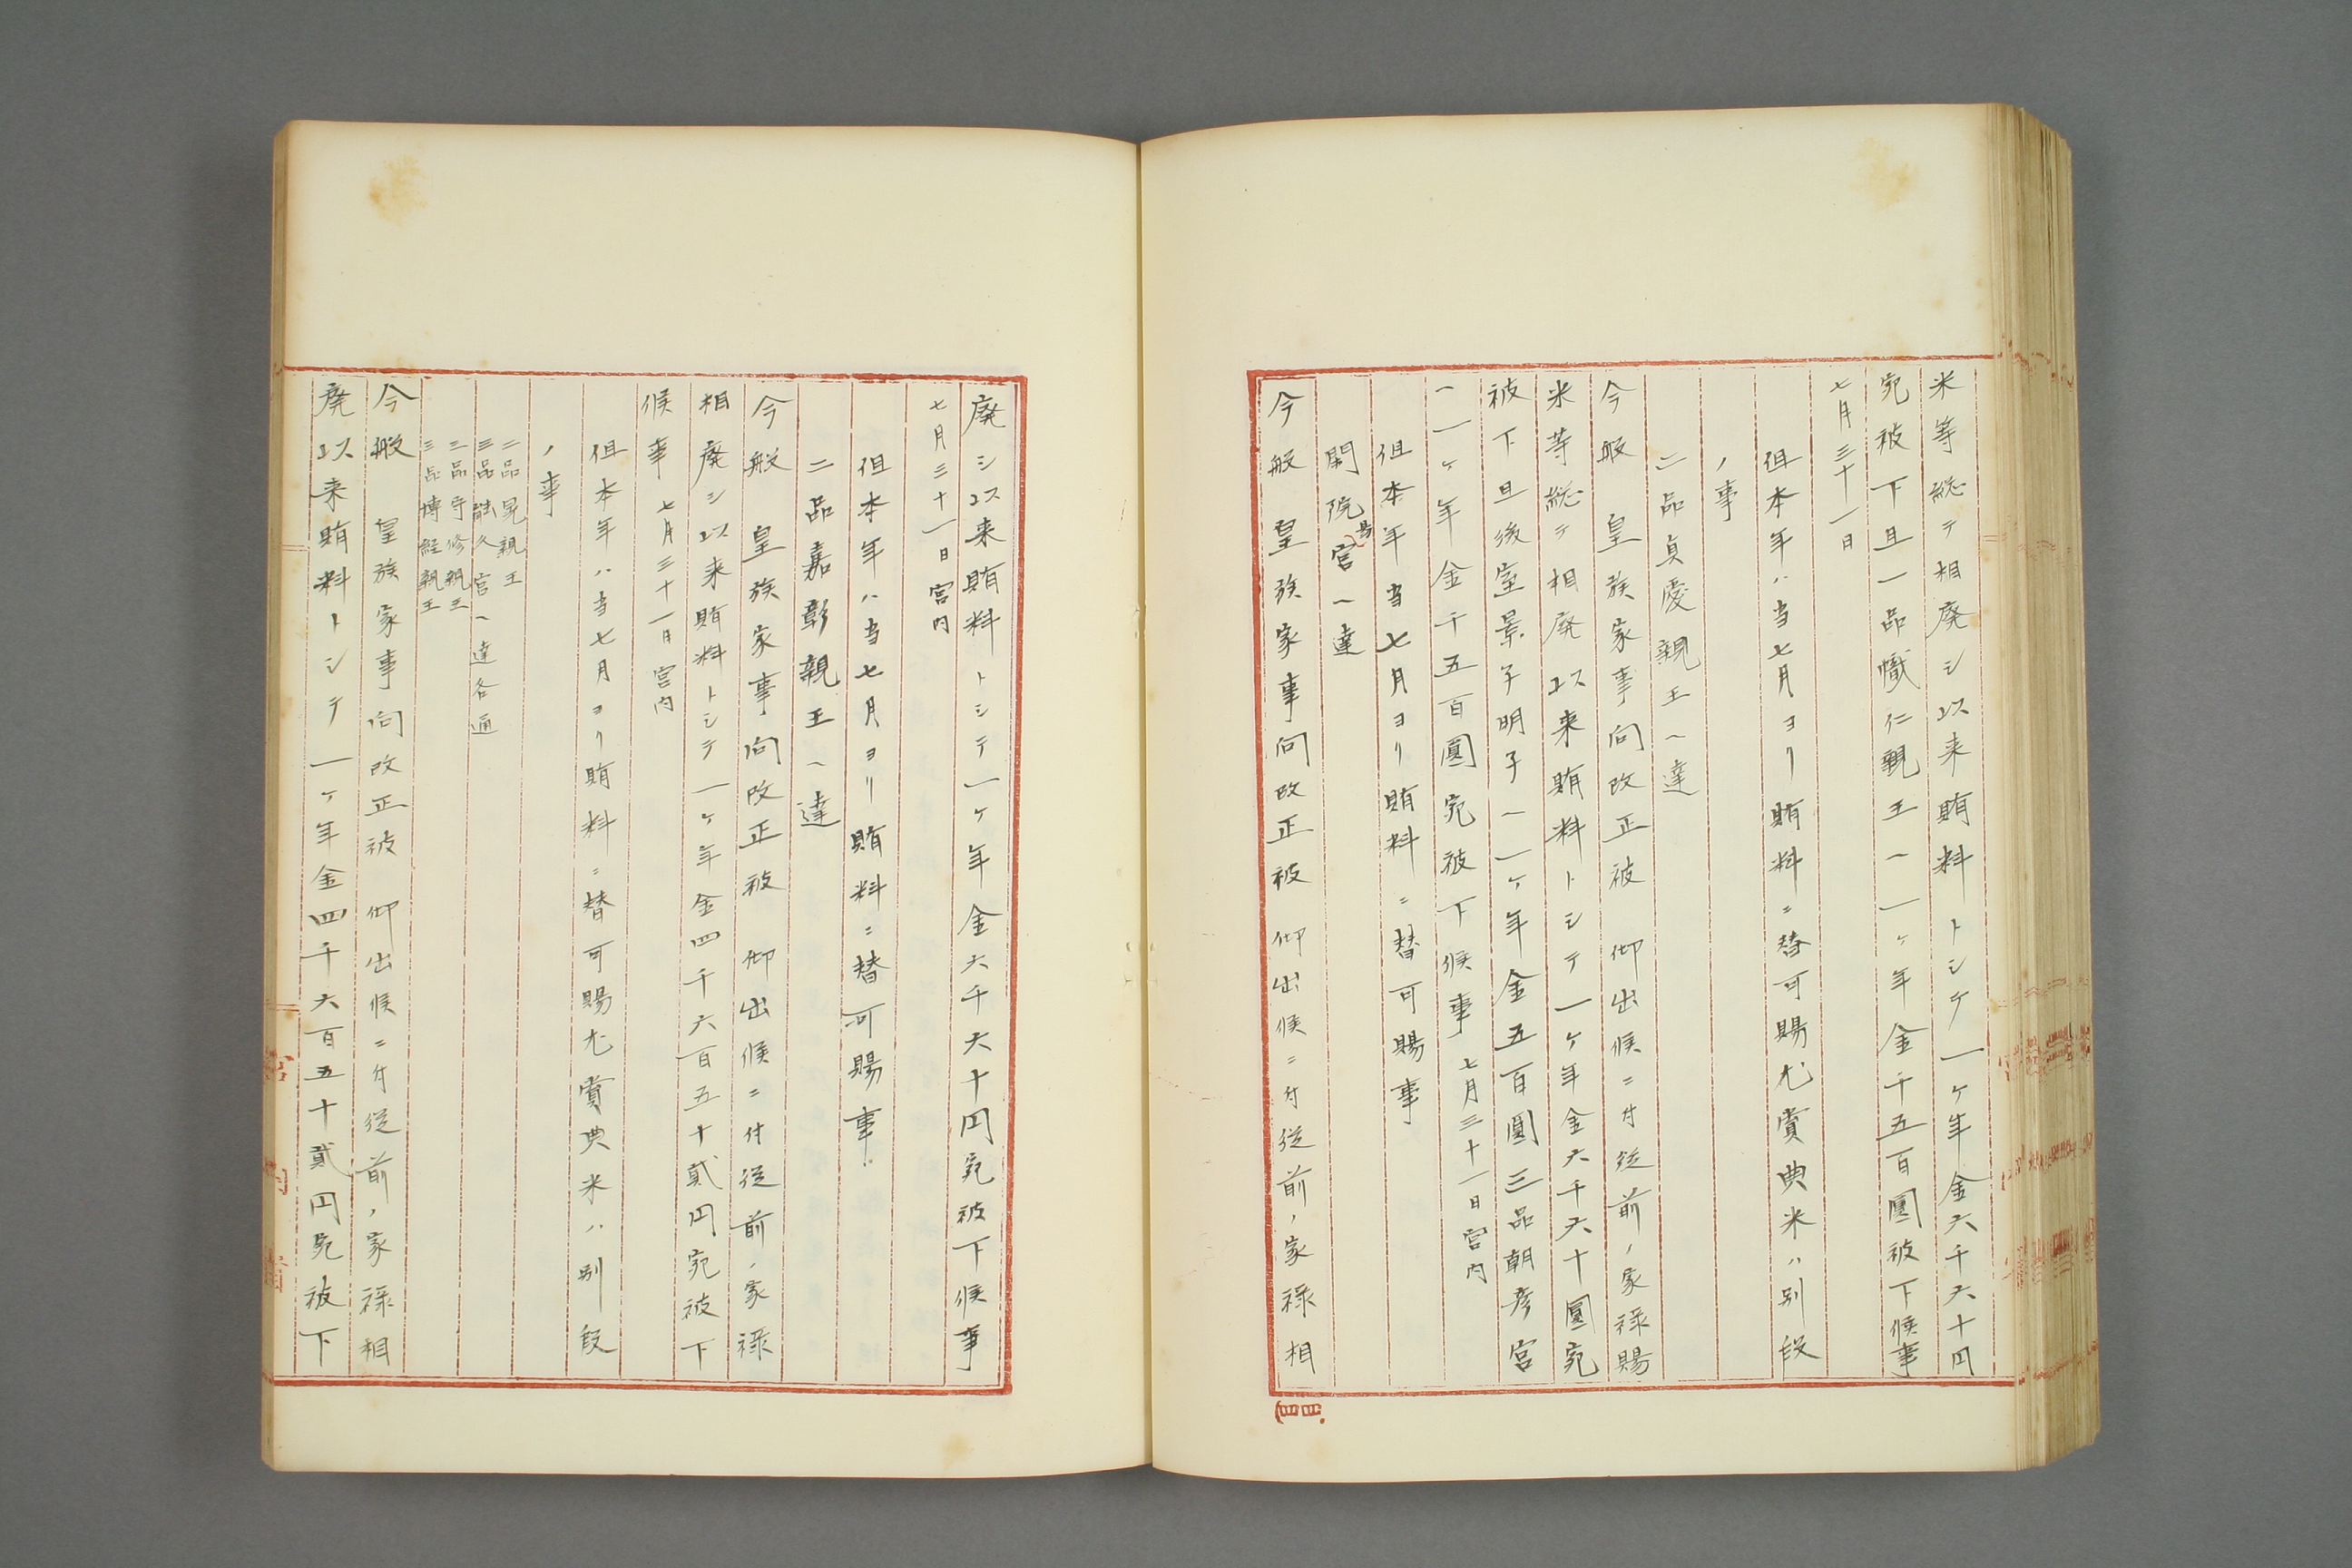 米等総テ相廃シ以来賄料トシテ一ケ年金六千六十円
宛被下且一品幟仁親王ヘ一ケ年金千五百圓被下候事
七月三十一日
但本年ハ当七月ヨリ賄料ニ替可賜尤賞典米ハ別段
ノ事
二品貞愛親王ヘ達
今般　皇族家事向改正被　仰出候ニ付従前ノ家禄賜
米等総テ相廃以来賄料トシテ一ケ年金六千六十圓宛
被下且後室景子明子ヘ一ケ年金五百圓三品朝彦宮
ヘ一ケ年金千五百圓宛被下候事　七月三十一日宮内
但本年当七月ヨリ賄料ニ替可賜事
閑院宮ヘ達
今般　皇族家事向改正被　仰出候ニ付従前ノ家禄相
四四
廃シ以来賄料トシテ一ケ年金六千六十円宛被下候事
七月三十一日宮内
但本年ハ当七月ヨリ賄料ニ替可賜事
二品嘉彰親王ヘ達
今般　皇族家事向改正被　仰出候ニ付従前ノ家禄
相廃シ以来賄料トシテ一ケ年金四千六百五十貳円宛被下
候事　七月三十一日宮内
但本年ハ当七月ヨリ賄料ニ替可賜尤賞典米ハ別段
ノ事
二品晃親王
三品能久宮ヘ達各通
二品守脩親王
三品博経親王
今般　皇族家事向改正被　仰出候ニ付従前ノ家禄相
廃以来賄料トシテ一ケ年金四千六百五十貳円宛被下